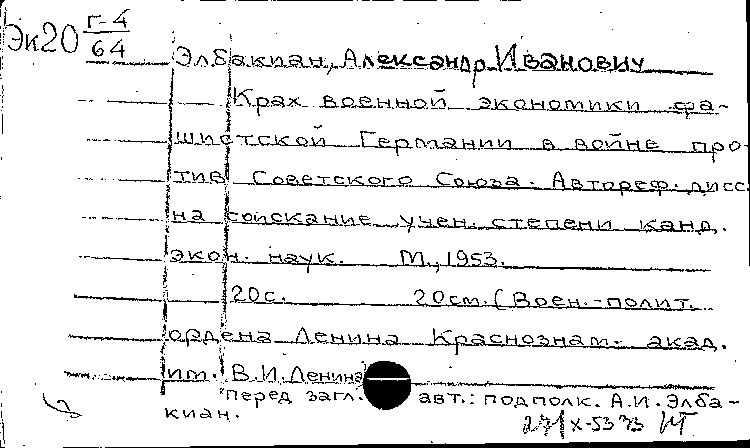 Эк20 Г-4
64
Элбакиан, Александр Иванович
Крах военной экономики фа-
шистской Германии в войне про-
тив Советского Союза. Автореф. дисс.
на соискание учен. степени канд.
экон. наук. М., 1953.
20с. 20см. (Воен.-полит.
ордена Ленина Краснознам. акад.
им. В.И.Ленина)
Перед загл. авт.: подполк. А.И.Элба-
киан.